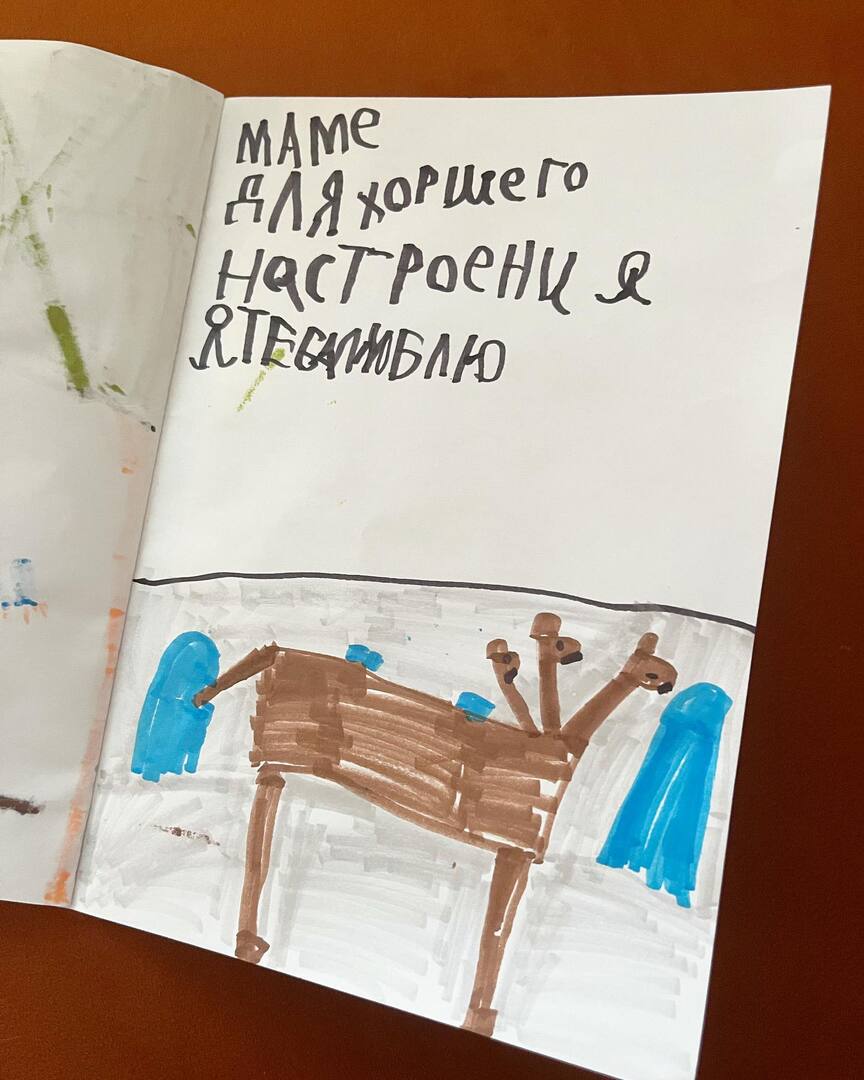 МАМЕ
ДЛЯ ХОРШЕГО
НАСТРОЕНИ Я
ЯТЕБЯЛЮБЛЮ